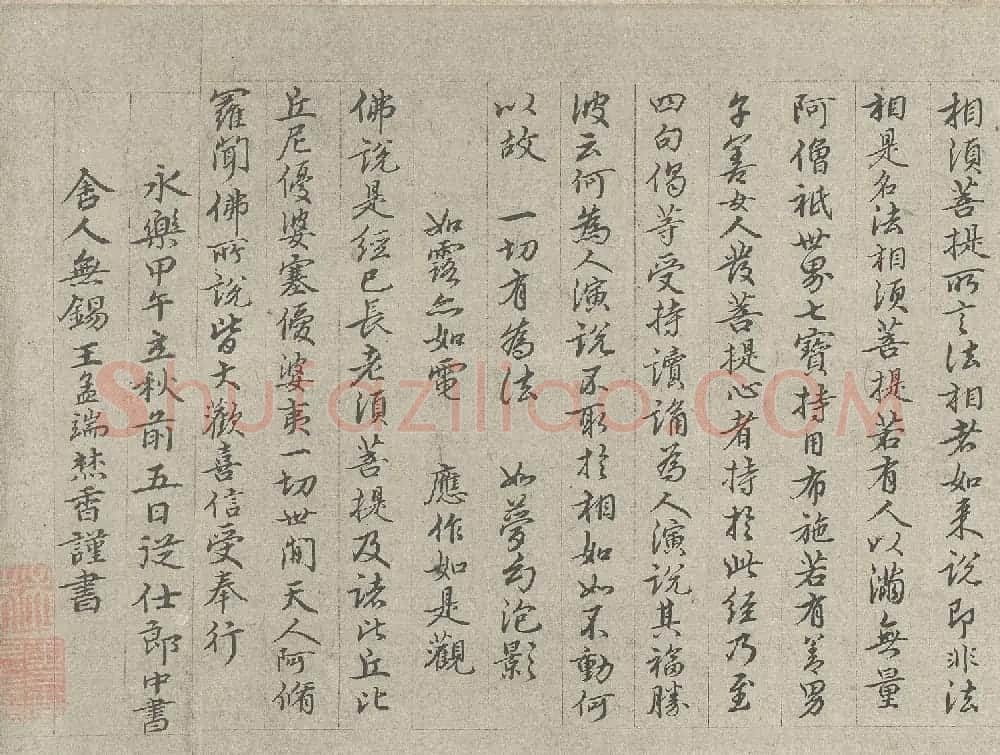 相須菩提所言法相者如来説即非法
相是名法相須菩提若有人以滿無量
阿僧祇世界七寶持用布施若有善男
子善女人發菩提心者持於此經乃至
四句偈等受持讀誦為人演說其福勝
彼云何為人演說不取於相如如不動何
以故 一切有為法 如夢幻泡影
如露亦如電 應作如是觀
佛說是經已長老須菩提及諸比丘比
丘尼優婆塞優婆夷一切世間天人阿脩
羅聞佛所說皆大歡喜信受奉行
永樂甲午立秋前五日從仕郎中書
舍人無錫王孟端焚香謹書
Shufaziliao.COM